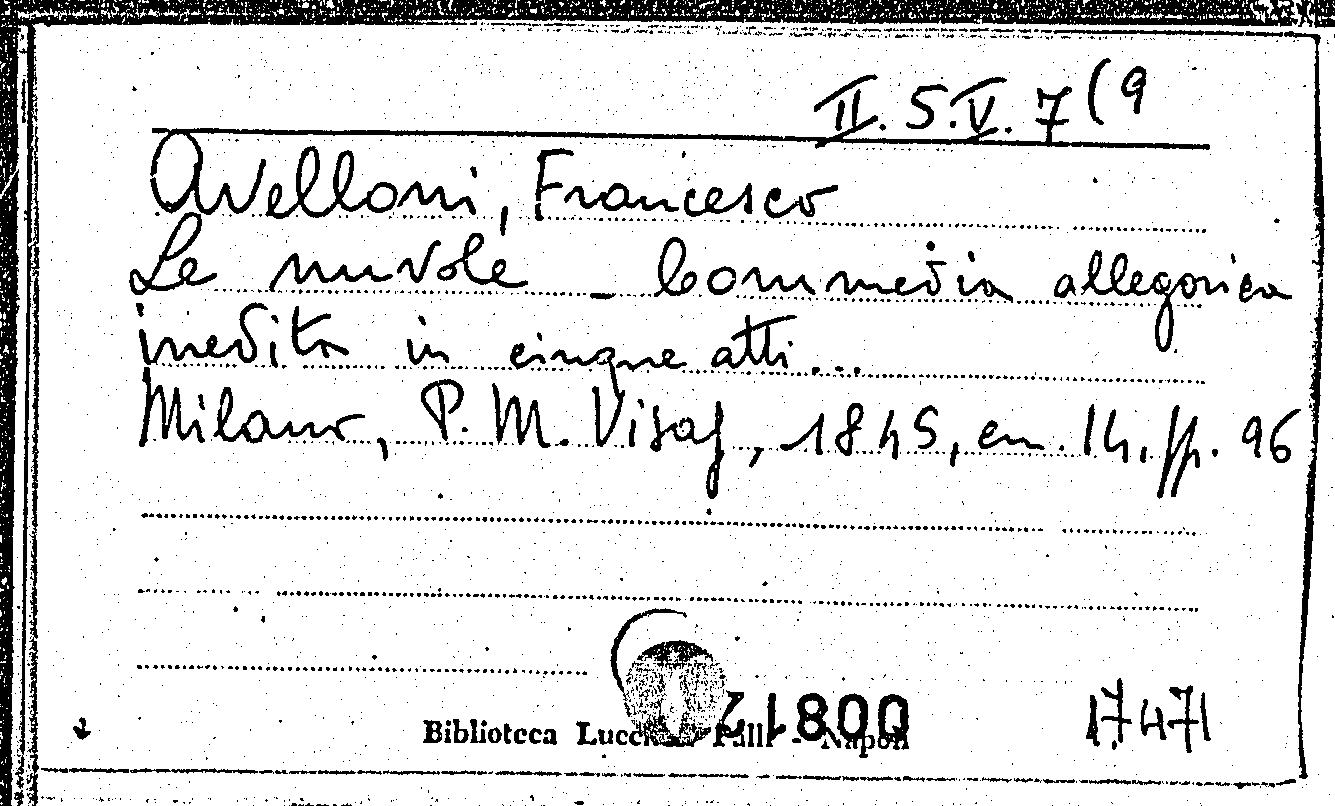 II. 5.V. 7(9
Avelloni, Francesco
Le nuvole _ Commedia allegorica
inedita in cinque atti...
Milano, P. M. Visaj, 1845, cm. 14. pp. 96
Biblioteca Lucchesi Palli - Napoli
17471